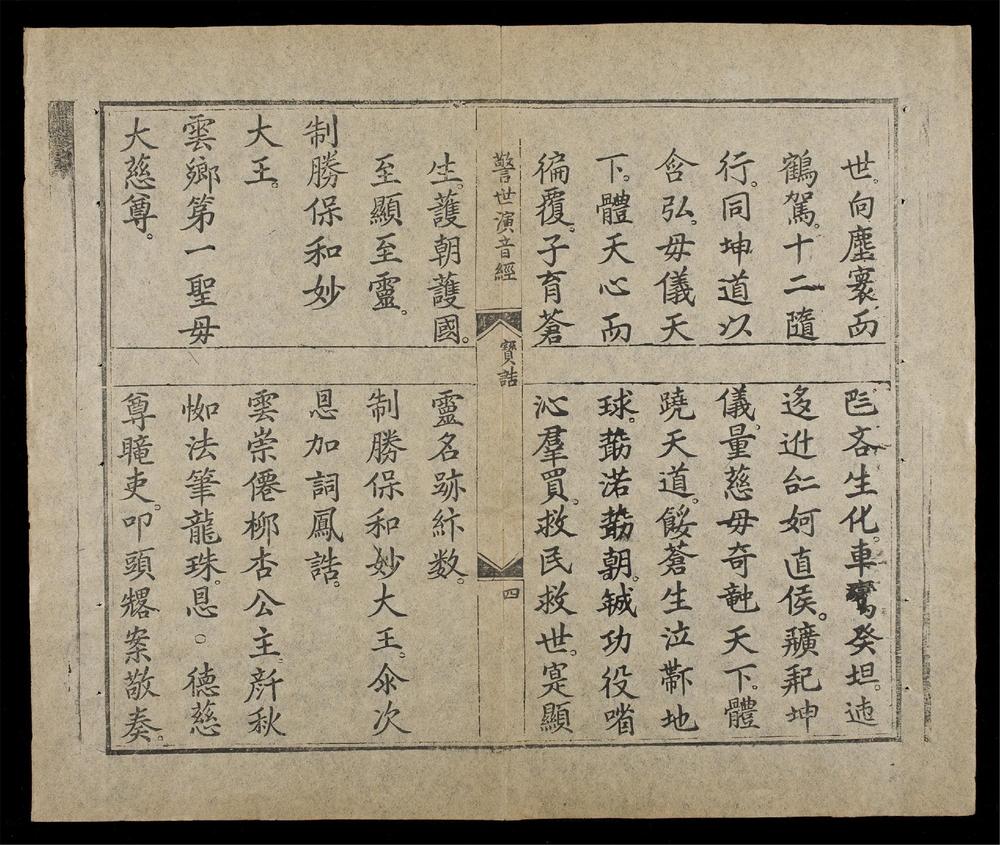 世。向塵寰而
鶴駕。十二隨
行。同坤道以
含弘。母儀天
下。體天心而
徧覆。子育蒼
吝生化。車鸞癸坦。
妸直侯。坤
儀。量慈母奇天下。體
蹺天道。餒蒼生泣地
球。渃朝。功役
沁羣買。救民救世。寔顯
警世演音經
寶誥
四
生。護朝護國。
至顯至靈。
制勝保和妙
大王。
雲鄉第一聖母
大慈尊。
靈名跡数。
制勝保和妙大王。次
恩加詞鳳誥。
雲崇僊柳杏公主。秋
法筆龍珠。恩○德慈
尊吏。叩頭案敬奏。